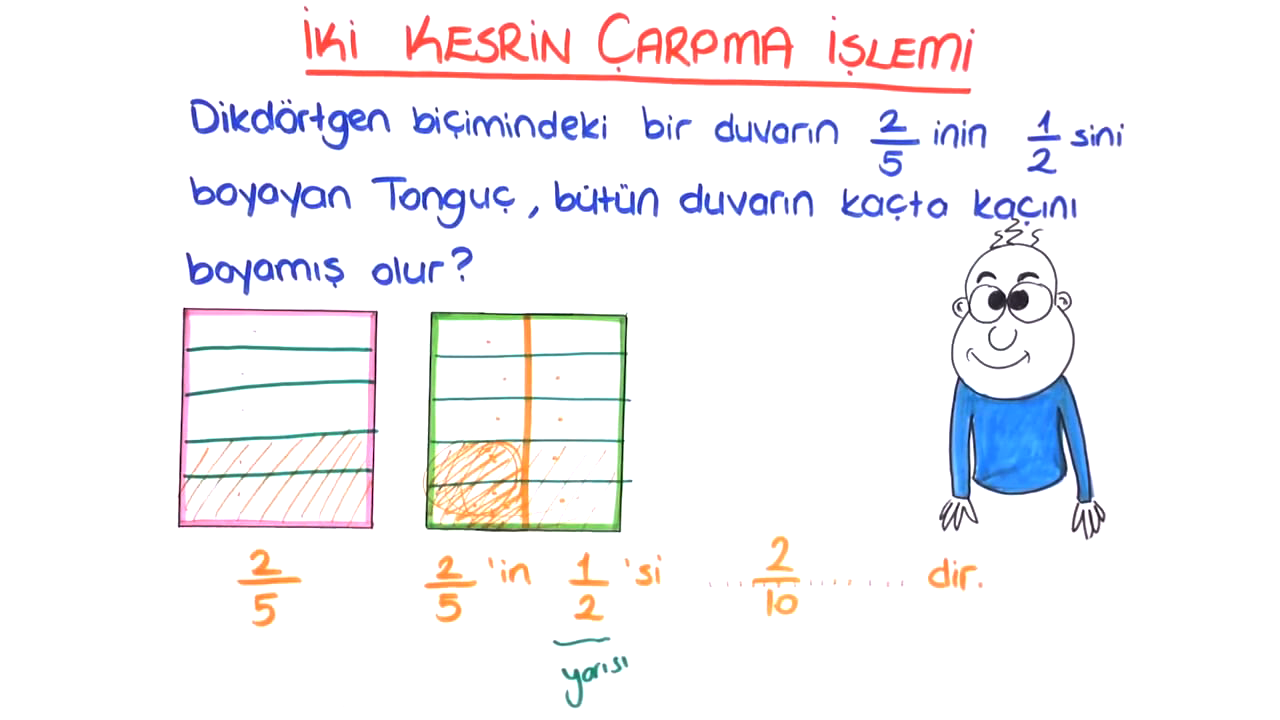 İKİ KESRİN ÇARPMA İŞLEMİ
Dikdörtgen biçimindeki bir duvarın 2/5 inin 1/2 sini
boyayan Tonguç, bütün duvarın kaçta kaçını
boyamış olur?
2/5 2/5 'in 1/2 'si ........ 2/10 ........ dir.
yarısı